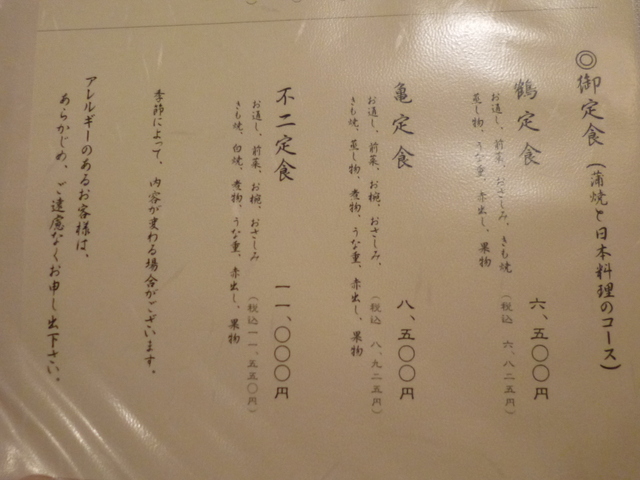 ◎御定食(蒲焼と日本料理のコース)
鶴定食 六、五〇〇円
お通し、前菜、おさしみ、きも焼 (税込 六、八二五円)
蒸し物、うな重、赤出し、果物
亀定食 八、五〇〇円
お通し、前菜、お椀、おさしみ、 (税込 八、九二五円)
きも焼、蒸し物、煮物、うな重、赤出し、果物
不二定食 一一、〇〇〇円
お通し、前菜、お椀、おさしみ (税込一一、五五〇円)
きも焼、白焼、煮物、うな重、赤出し、果物
季節によって、内容が変わる場合がございます。
アレルギーのあるお客様は、
あらかじめ、ご遠慮なくお申し出下さい。